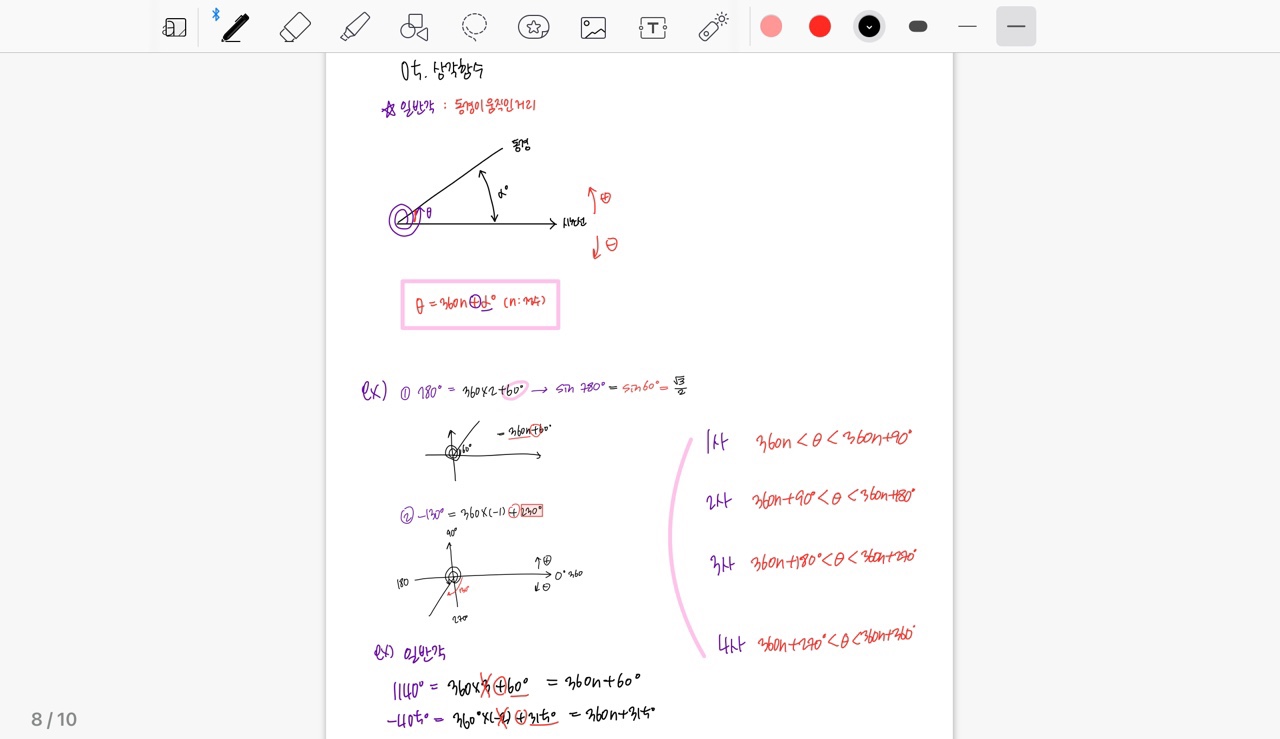 05. 삼각함수
☆ 일반각 : 동경이 움직인 거리
동경
α°
θ
시초선
⊕
⊖
θ = 360n + α° (n : 정수)
ex) ① 780° = 360×2+60° → sin 780° = sin60° = √3/2
= 360n+60°
60°
② -130° = 360×(-1) + 230°
90°
180
0° 360
⊕
⊖
130°
270°
1사 360n < θ < 360n+90°
2사 360n+90° < θ < 360n+180°
3사 360n+180° < θ < 360n+270°
4사 360n+270° < θ < 360n+360°
ex) 일반각
1140° = 360×3 + 60° = 360n+60°
-405° = 360°×(-2) + 315° = 360n+315°
8 / 10